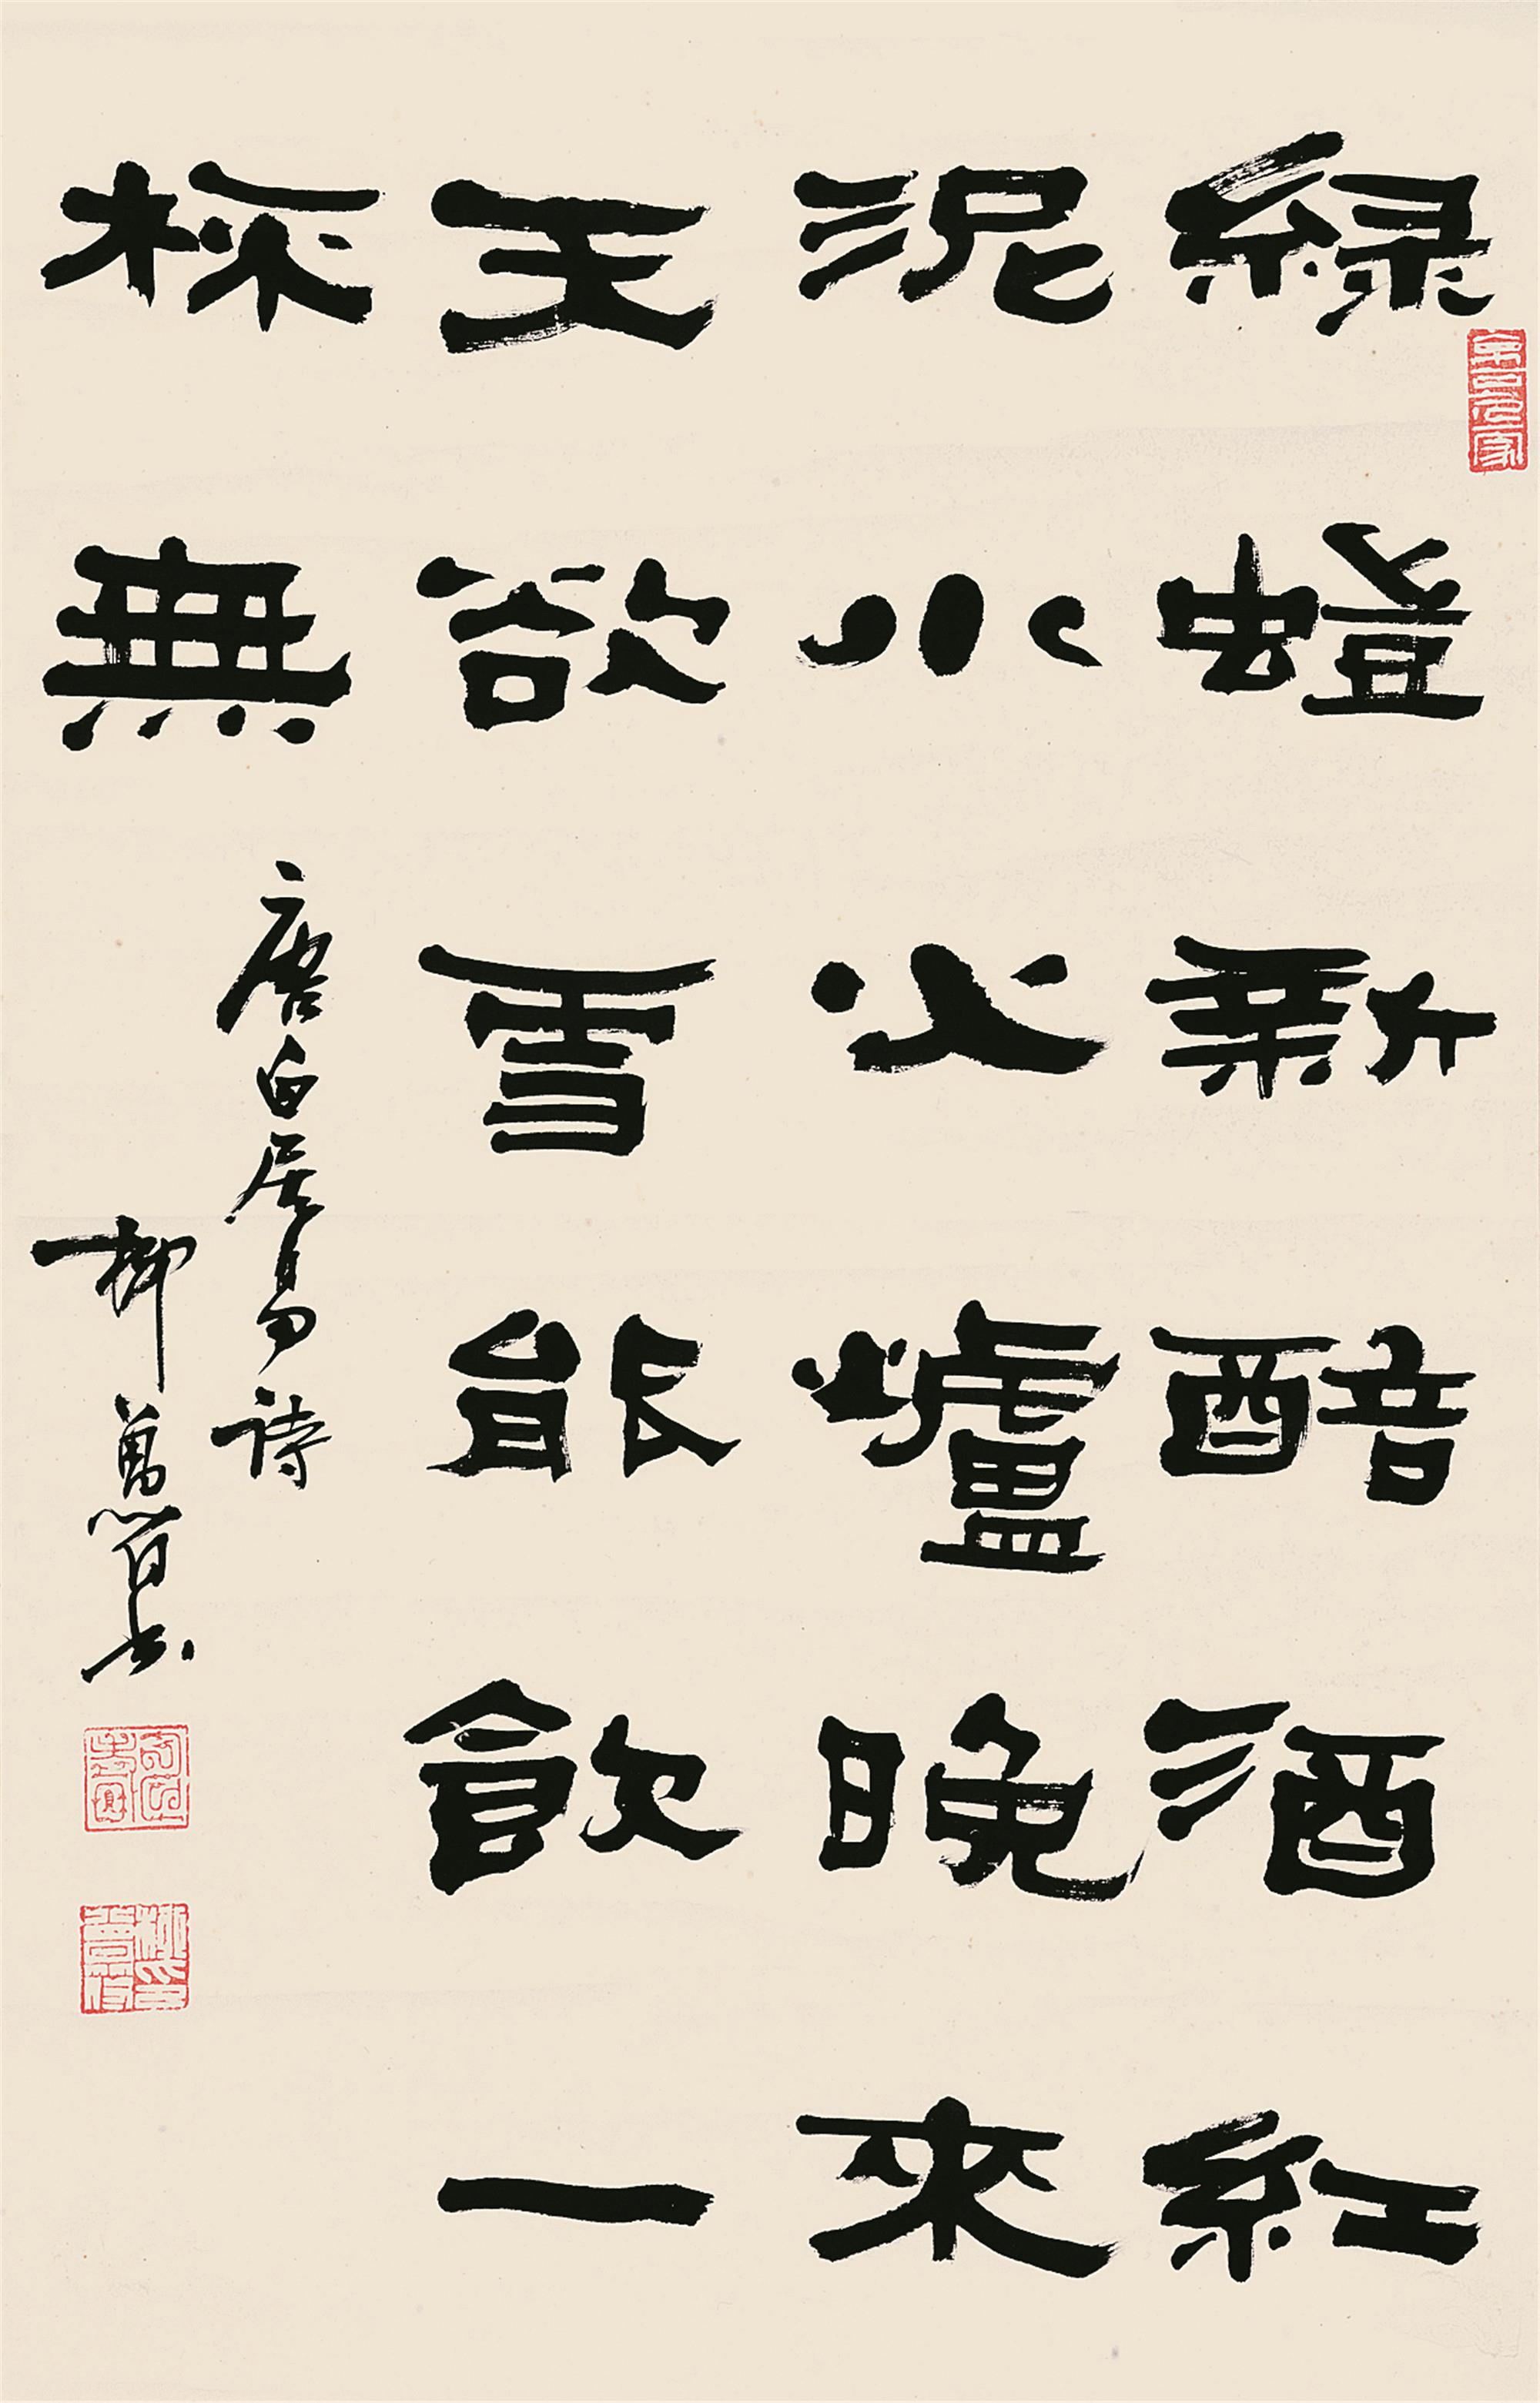 緑螘新醅酒紅
泥小火爐晚來
天欲雪能飲一
杯無
唐白居易詩
柳曾符書
柳印曾符